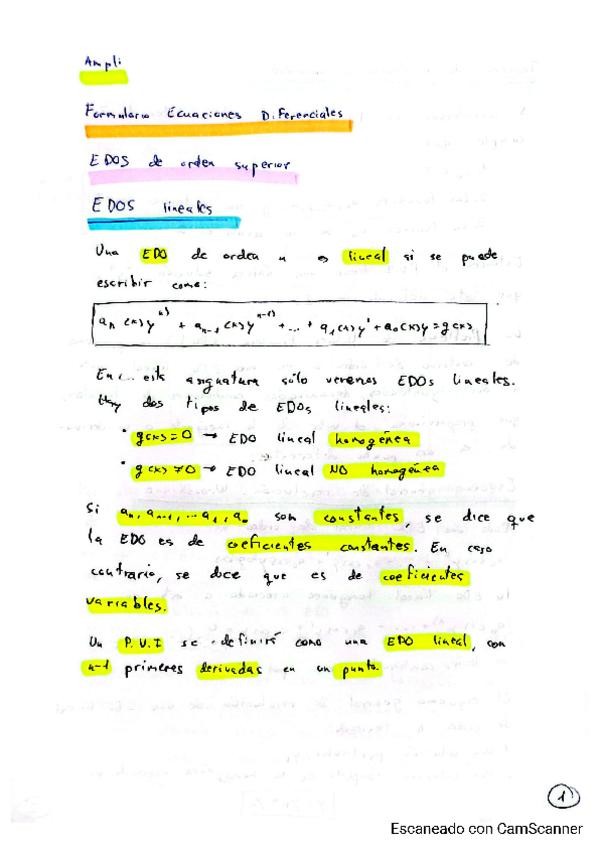 Ampli
Formulario Ecuaciones Diferenciales
EDOS de orden superior
EDOS lineales
Una EDO de orden n es lineal si se puede
escribir como:
aₙ(x)y⁽ⁿ⁾ + aₙ₋₁(x)y⁽ⁿ⁻¹⁾ + ... + a₁(x)y' + a₀(x)y = g(x)
En esta asignatura sólo veremos EDOs lineales.
Hay dos tipos de EDOs lineales:
· g(x) = 0 → EDO lineal homogénea
· g(x) ≠ 0 → EDO lineal NO homogénea
Si aₙ, aₙ₋₁, ... a₁, a₀ son constantes, se dice que
la EDO es de coeficientes constantes. En caso
contrario, se dice que es de coeficientes
variables.
Un P.V.I se definirá como una EDO lineal, con
n-1 primeras derivadas en un punto.
1
Escaneado con CamScanner